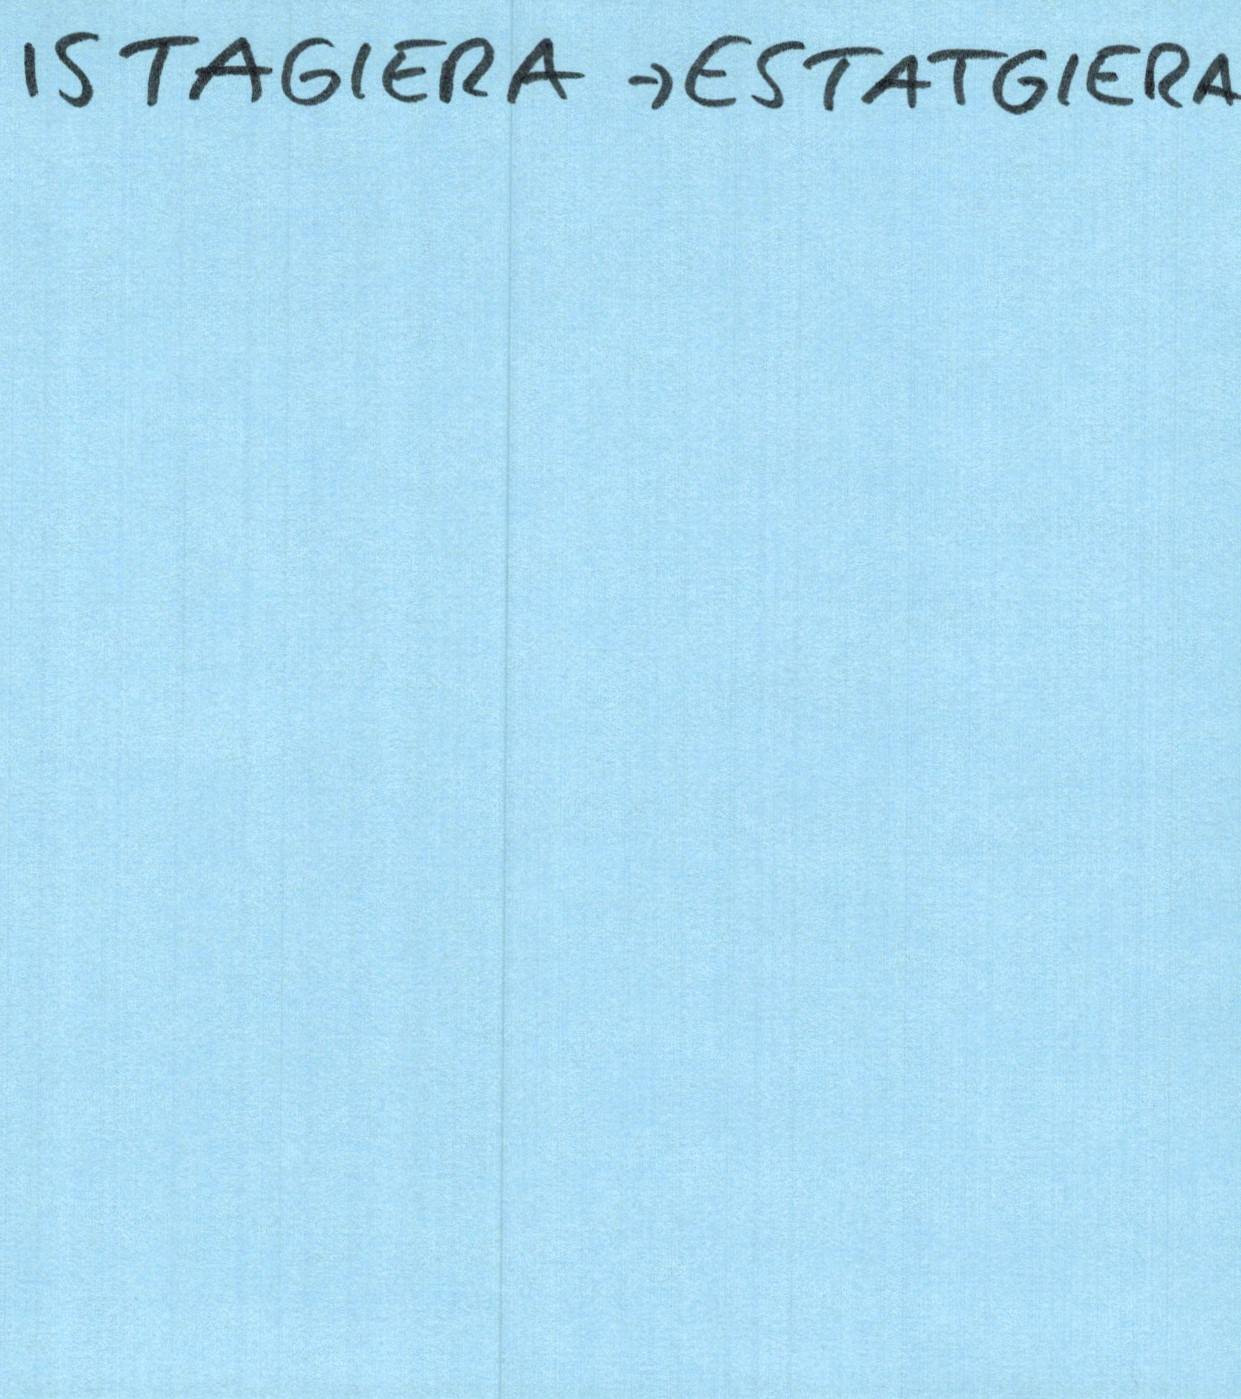 ISTAGIERA → ESTATGIERA